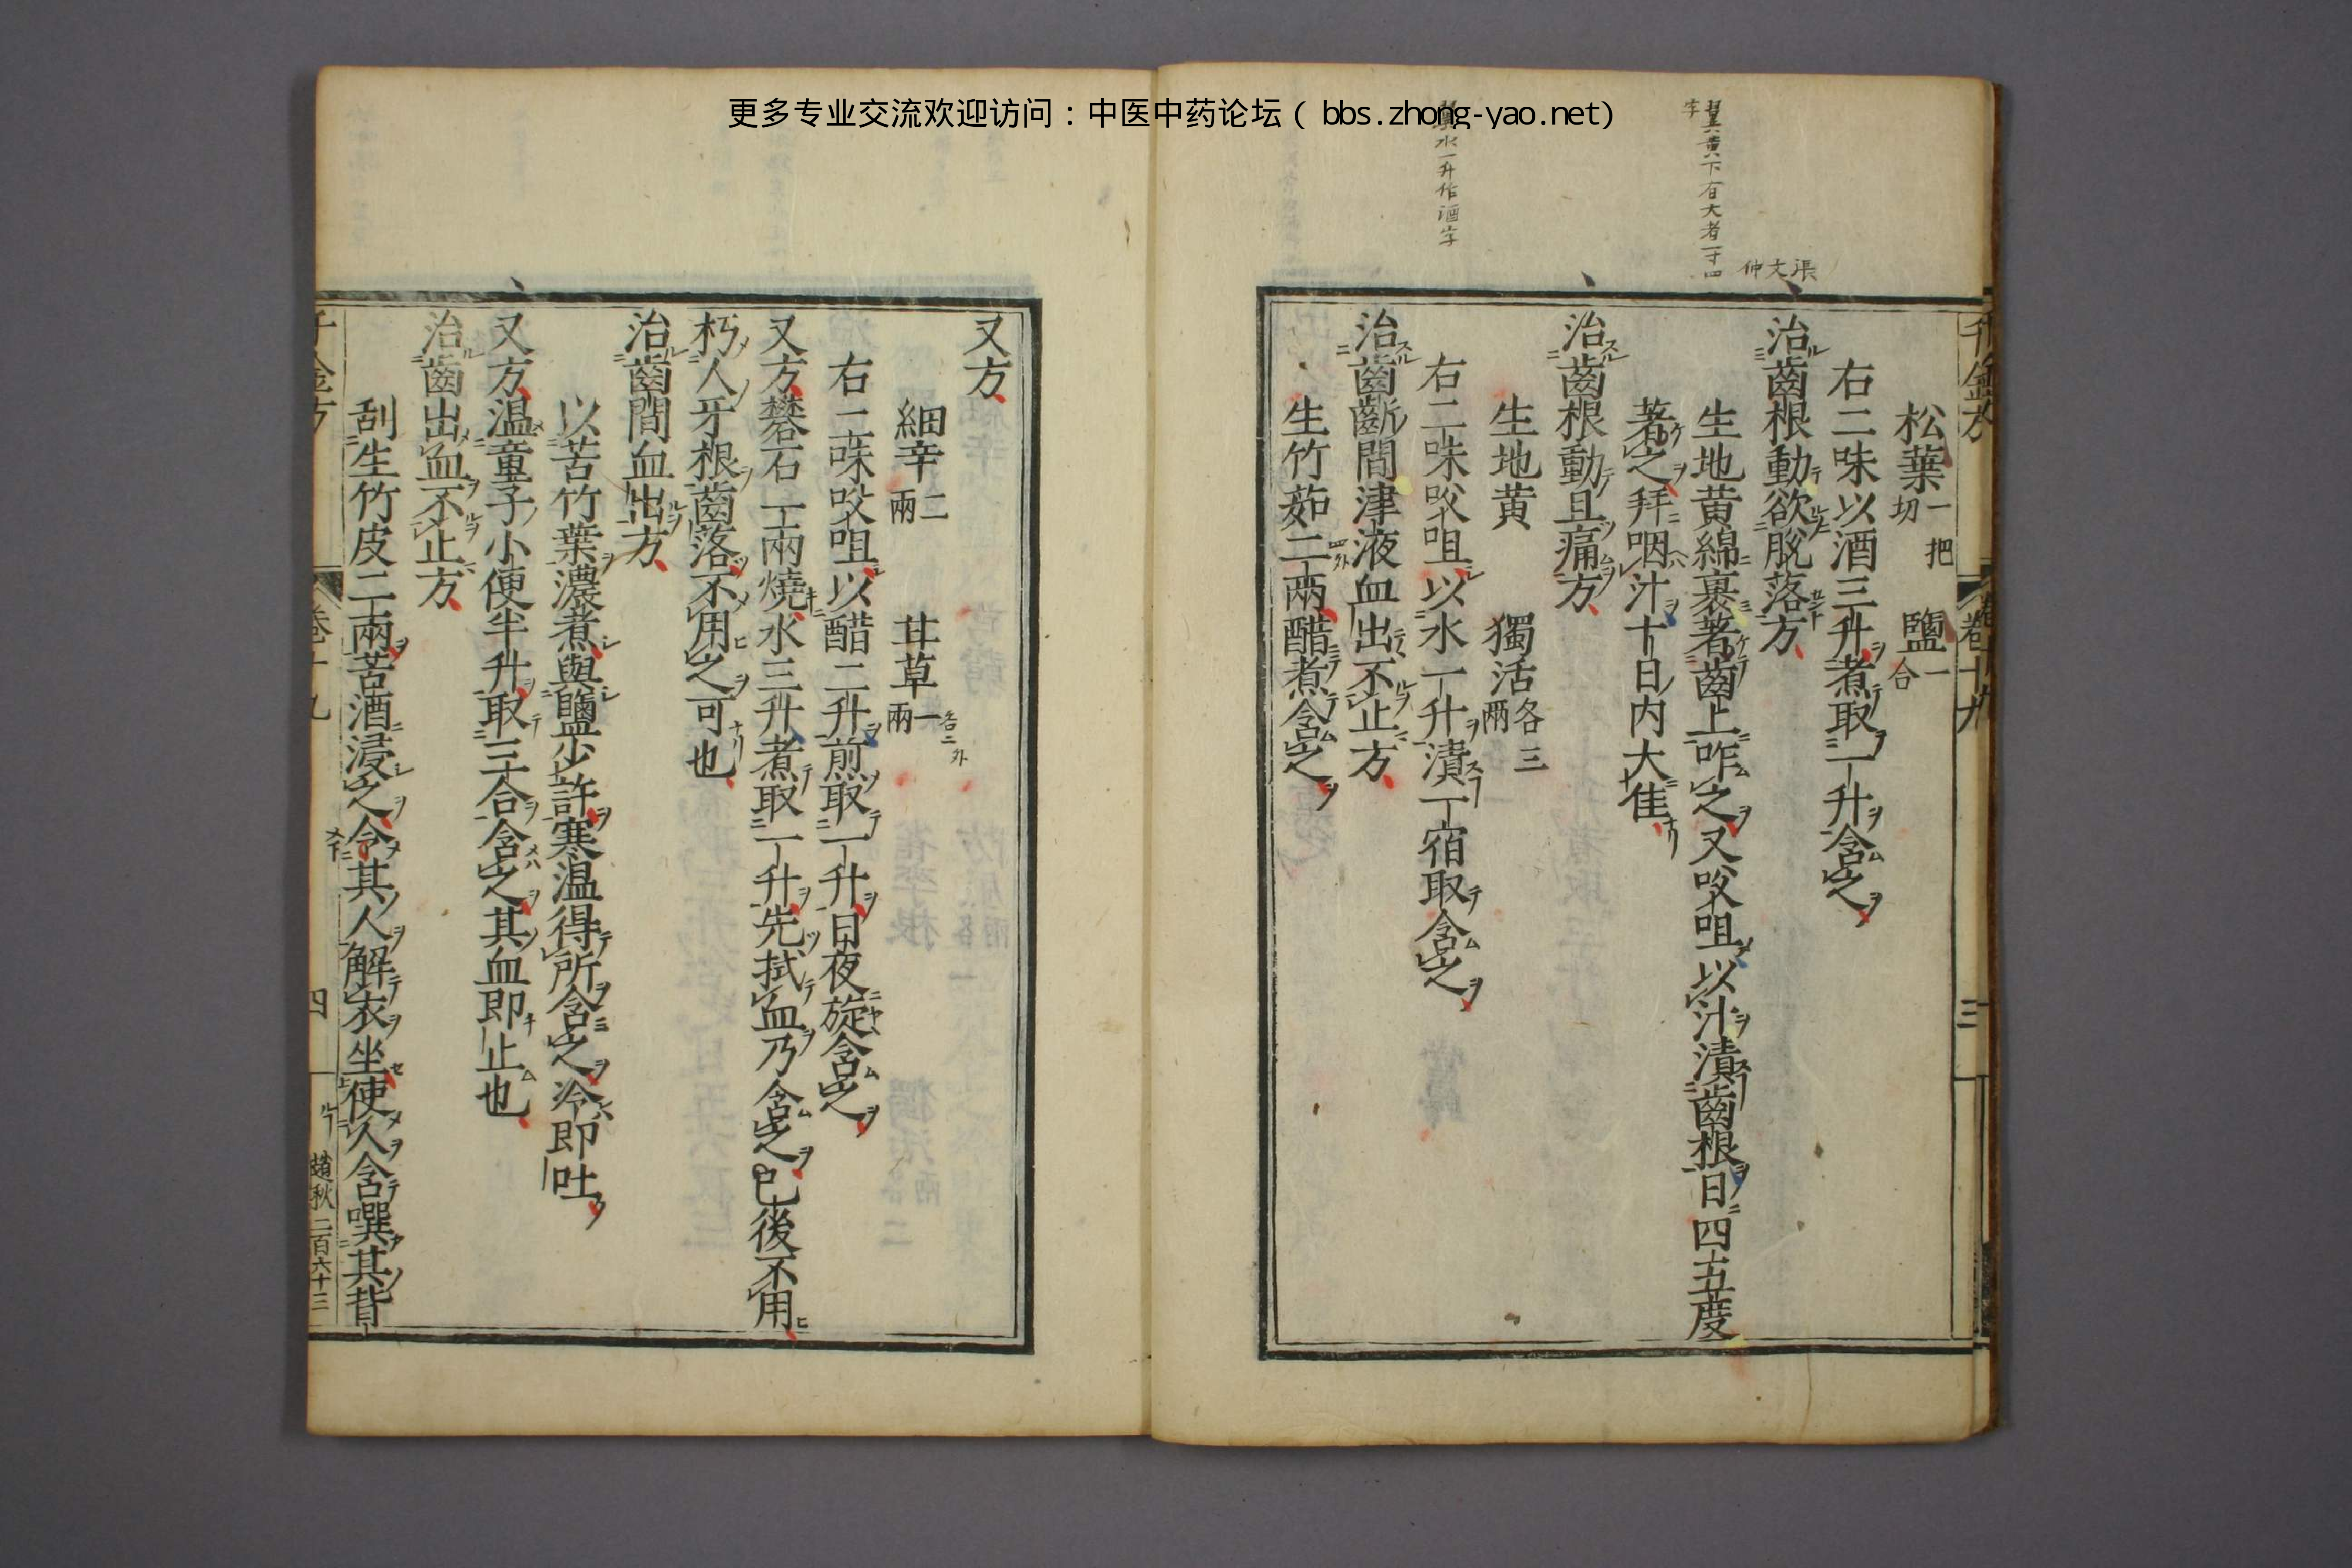 更多专业交流欢迎访问：中医中药论坛（bbs.zhong-yao.net）
翼黄下有大者一寸四
字
渠文仲
翼水一升作酒字
千金方 卷十九 三
松葉一把切 鹽一合
右二味以酒三升煮取一升含之
治齒根動欲脫落方
生地黃綿裹著齒上咋之又㕮咀以汁漬齒根日四五度
著之拜咽汁十日內大佳
治齒根動且痛方
生地黃 獨活各三兩
右二味㕮咀以水一升漬一宿取含之
治齒齗間津液血出不止方
生竹茹二兩醋煮含之
又方
細辛二兩 甘草一兩
右二味㕮咀以醋二升煎取一升日夜旋含之
又方礬石一兩燒水三升煮取一升先拭血乃含之已後不用
朽人牙根齒落不用之可也
治齒間血出方
以苦竹葉濃煮與鹽少許寒温得所含之冷即吐
又方温童子小便半升取三合含之其血即止也
治齒出血不止方
刮生竹皮二兩苦酒浸之令其人解衣坐使人含噀其背
千金方 卷十九 四 趙秋 二百六十三